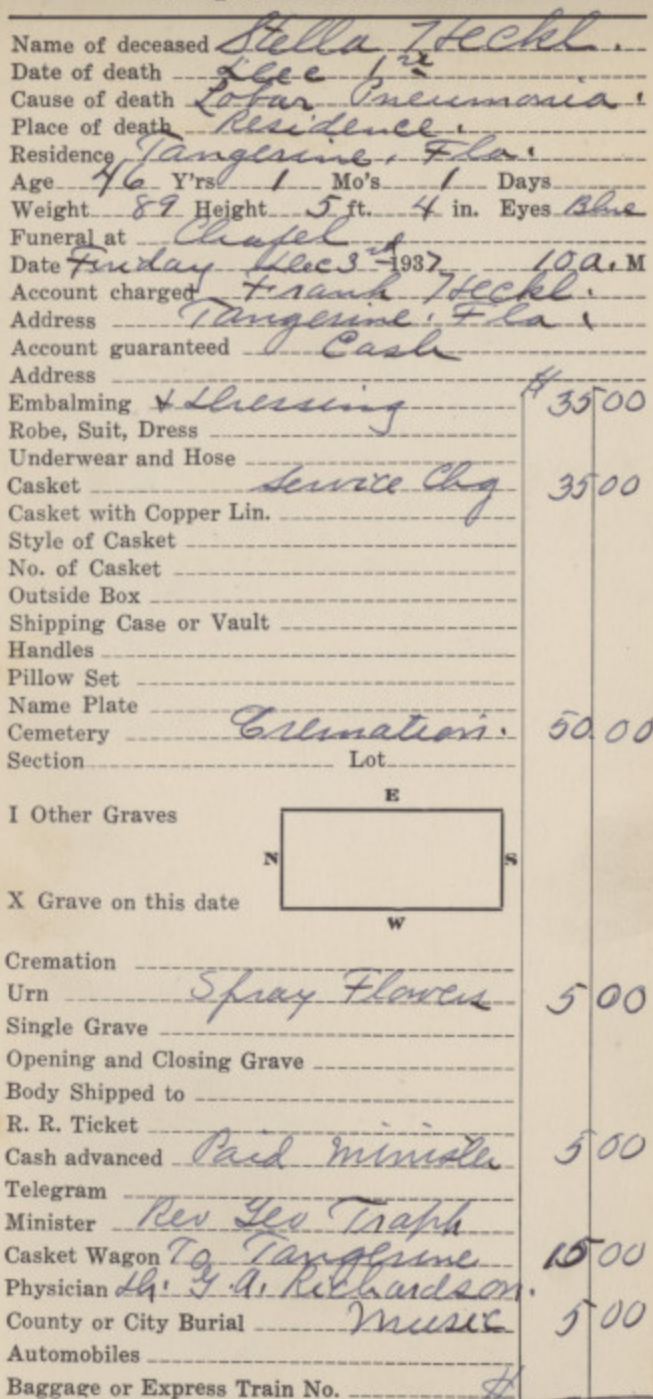 Name of deceased Stella Heckl.
Date of death Dec 1st
Cause of death Lobar Pneumonia.
Place of death Residence.
Residence Tangerine, Fla.
Age 46 Y'rs 1 Mo's 1 Days
Weight 89 Height 5 ft. 4 in. Eyes Blue
Funeral at Chapel
Date Friday Dec 3rd 1937 10 a. M
Account charged Frank Heckl.
Address Tangerine, Fla.
Account guaranteed Cash
Address
Embalming & Dressing $ 35 00
Robe, Suit, Dress
Underwear and Hose
Casket Service Chg 35 00
Casket with Copper Lin.
Style of Casket
No. of Casket
Outside Box
Shipping Case or Vault
Handles
Pillow Set
Name Plate
Cemetery Cremation. 50 00
Section Lot
E
I Other Graves
N S
X Grave on this date
W
Cremation
Urn Spray Flowers 5 00
Single Grave
Opening and Closing Grave
Body Shipped to
R. R. Ticket
Cash advanced Paid Minister 5 00
Telegram
Minister Rev Geo Traph
Casket Wagon To Tangerine 15 00
Physician Dr. G. A. Richardson.
County or City Burial Music 5 00
Automobiles
Baggage or Express Train No. $